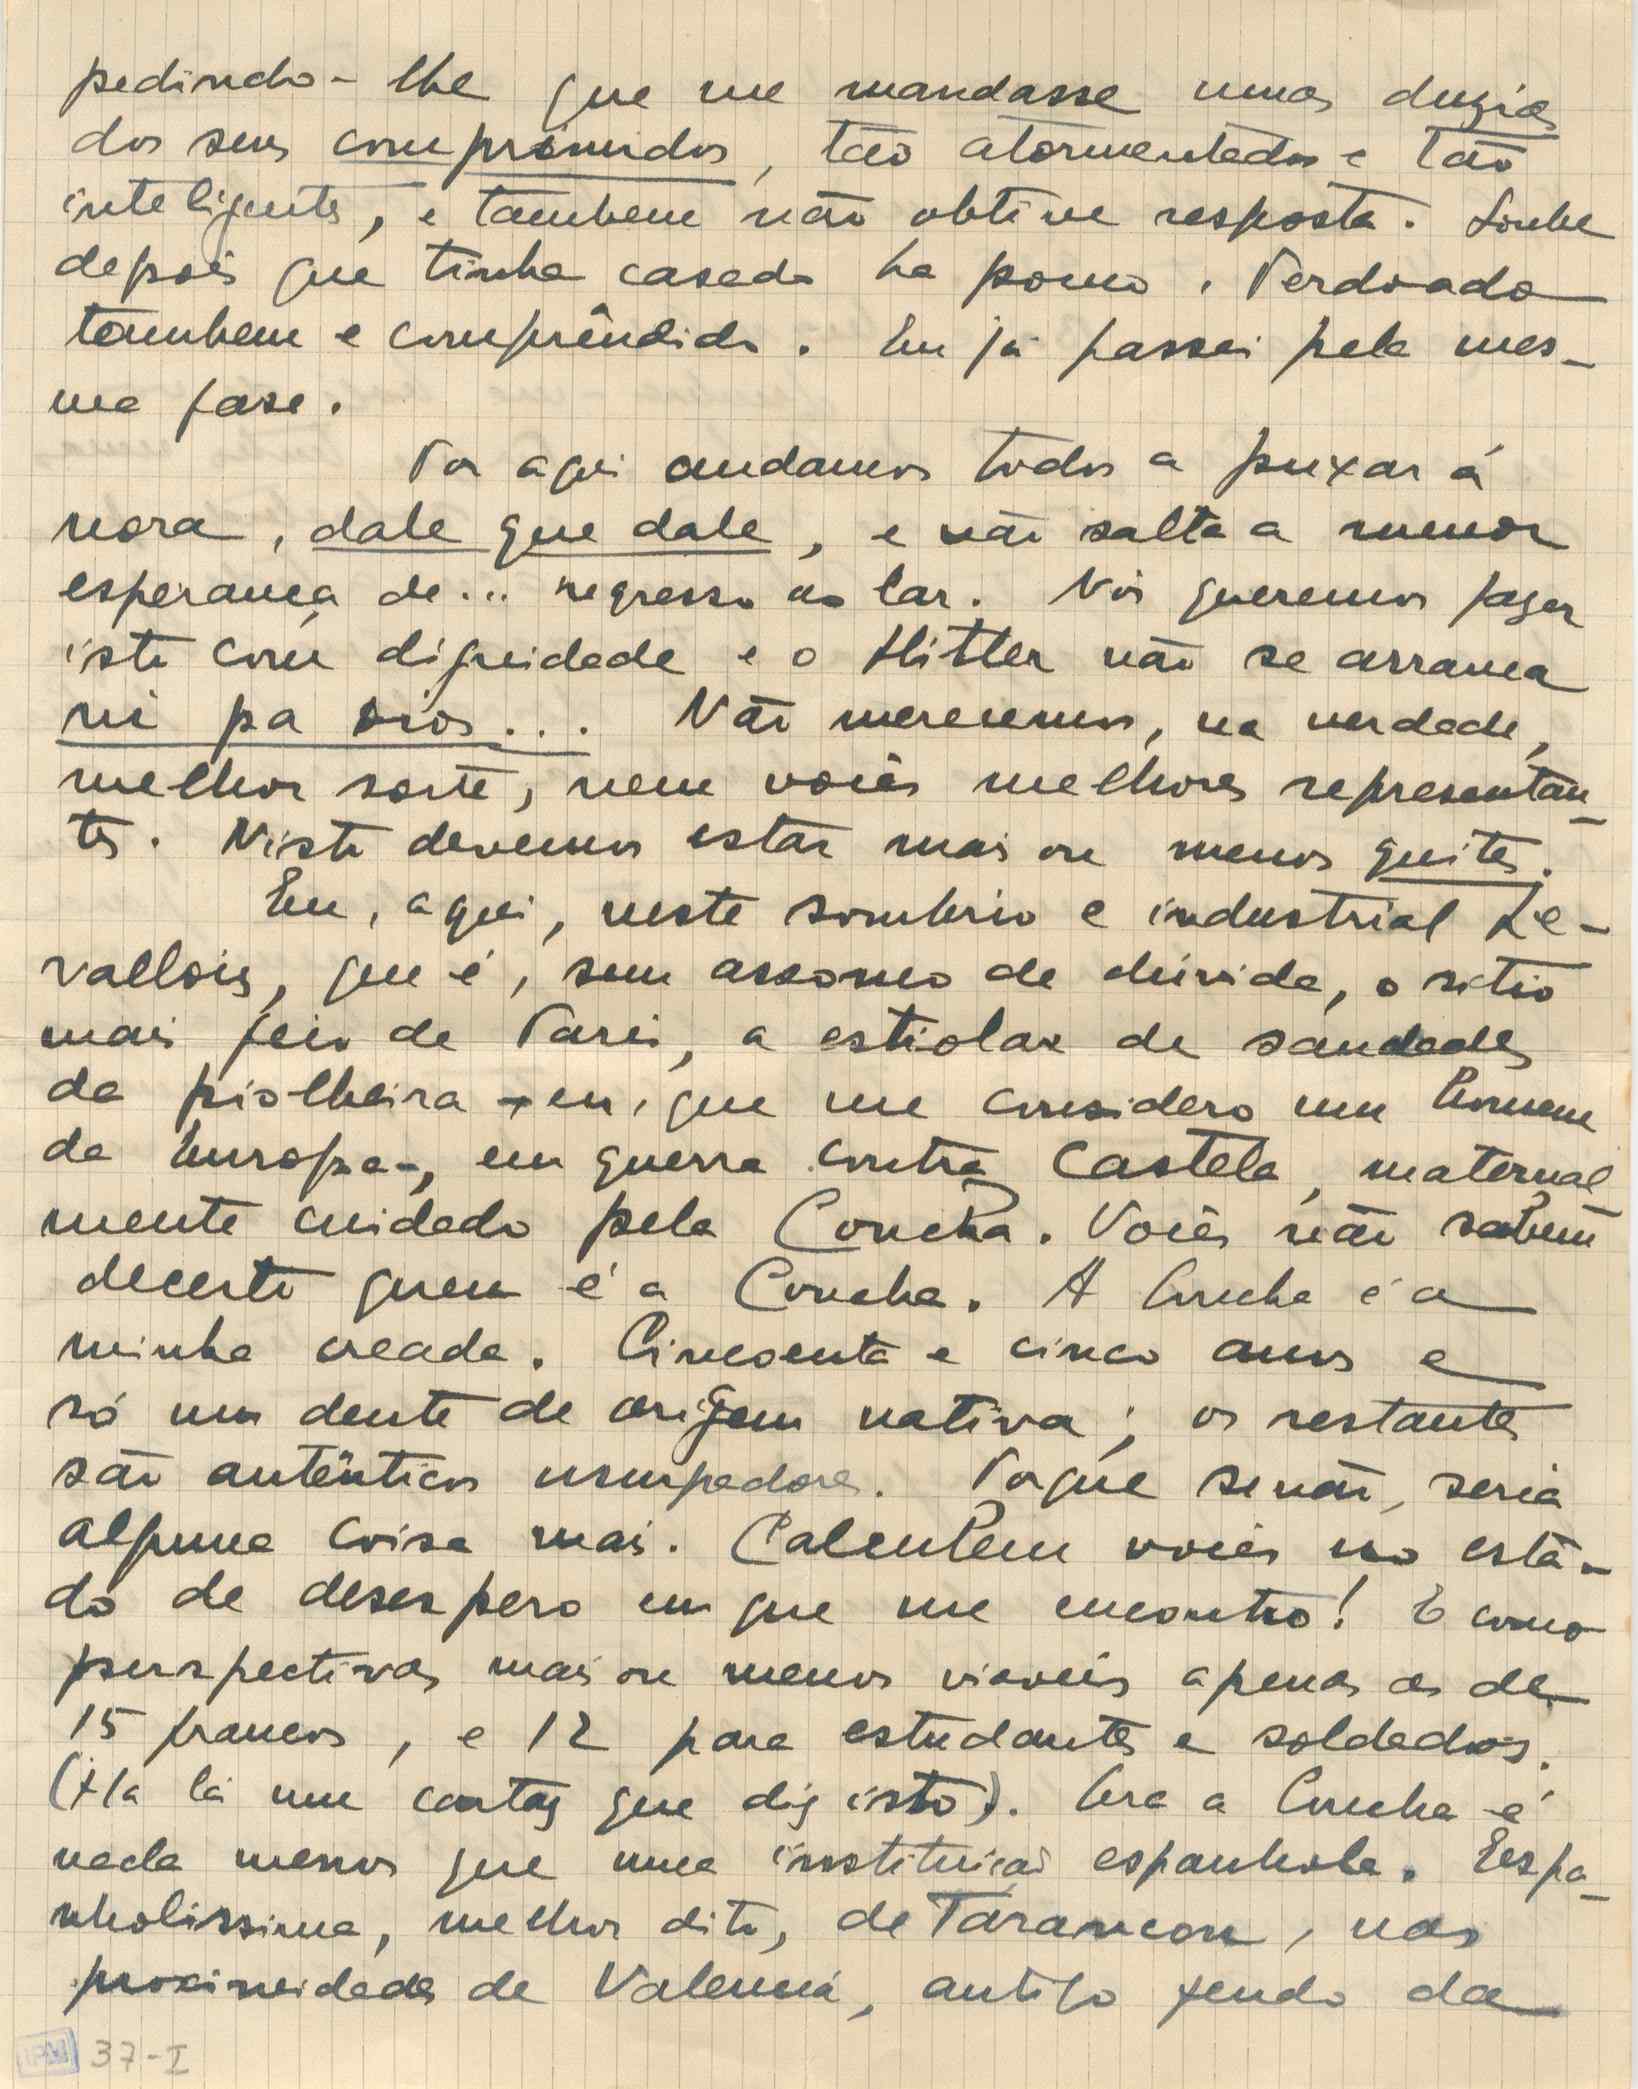 pedindo-lhe que me mandasse umas duzias
dos seus comprimidos, tão atormentados e tão
inteligentes, e tambem não obtive resposta. Soube
depois que tinha casado ha pouco. Perdoado
tambem e comprêndido. Eu já passei pela mes-
ma fase.
Por aqui andamos todos a puxar á
nora, dale que dale, e não salta a menor
esperança de... regresso ao lar. Nós queremos fazer
isto com dignidade e o Hitler não se arranca
ni pa Dios... Não merecemos, na verdade,
melhor sorte, nem vocês melhores representan-
tes. Nisto devemos estar mais ou menos quites.
Eu, aqui, neste sombrio e industrial Le-
vallois, que é, sem assomo de dúvida, o sitio
mais feio de Paris, a estiolar de saudades
da piolheira - eu, que me considero um homem
da Europa -, em guerra contra Castela, maternal
mente cuidado pela Concha. Vocês não sabem
decerto quem é a Concha. A Concha é a
minha creada. Cincoenta e cinco anos e
só um dente de origem nativa; os restantes
são autênticos usurpadores. Porque senão, seria
alguma coisa mais. Calculem vocês no está-
do de desespero em que me encontro! E como
perspectivas mais ou menos viaveis apenas as de
15 francos, e 12 para estudantes e soldados.
(Ha lá um cartaz que diz isto). Ora a Concha é
nada menos que uma instituição espanhola. Espa-
nholissima, melhor dito, de Tarancon, nas
proximidades de Valencia, antigo feudo da
37-I